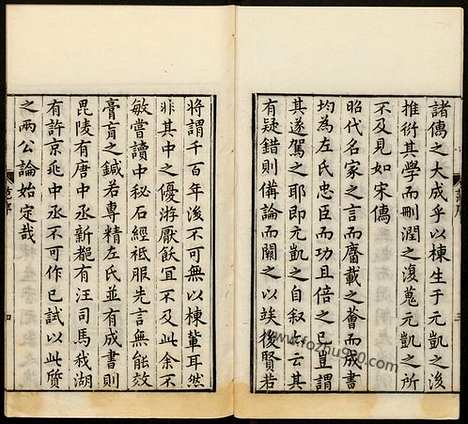 諸傳之大成乎以棟生于元凱之後
推衍其學而刪潤之復蒐元凱之所
不及見如宋儒
昭代名家之言而廣載之薈而成書
均為左氏忠臣而功且倍之已豈謂
其遂駕之耶即元凱自敘云其
有疑錯則備論而闕之以竢後賢若
將謂千百年後不可無以棟輩耳然
非其中之優游厭飫宜不及此余不
敏嘗讀中秘石經祗服先言無能效
膏肓之鍼若專精左氏並有成書則
毘陵有唐中丞新都有汪司馬我湖
有許京兆中丞不可作已試以此質
之兩公論始定哉
www.fozhu920.com